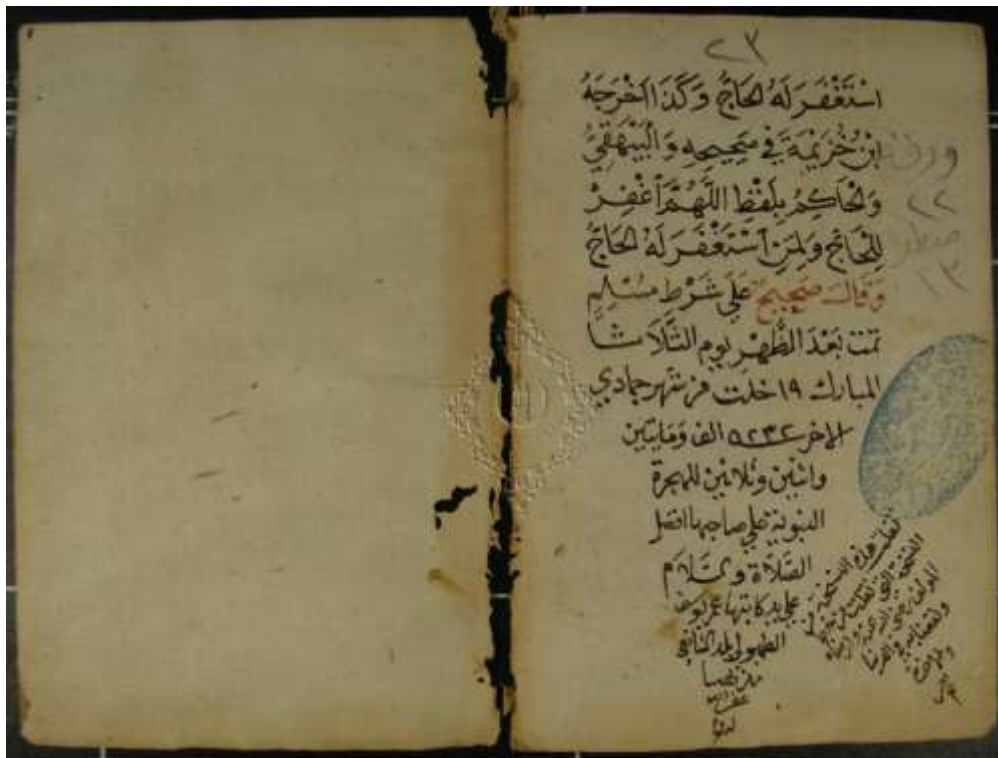 ٢٣
اسْتَغْفَرَ لَهُ الحَاجُّ وَكَذَا اخْرَجَهُ
ابْنُ خُزَيْمَةَ فِي صَحِيحِهِ وَالْبَيْهَقِيُّ
وَالحَاكِمُ بِلَفْظِ اللَّهُمَّ اغْفِرْ
لِلْحَاجِّ وَلِمَنِ اسْتَغْفَرَ لَهُ الحَاجُّ
وَقَالَ صَحِيحٌ عَلَى شَرْطِ مُسْلِمٍ
تمت بَعْدَ الظُّهْرِ يوم الثَّلَاثَا
المبارك ١٩ خلت من شهر جمادي
الاخر الف ومايتين
واثنين وثلاثين للهجرة
النبوية علي صاحبها افضل
الصَّلَاة والسَّلَام
علي يد كاتبها
بلد الشافعي
مذهبا
غفر الله
ورقة
٢٢
١٣
هذه النسخة
النسخة التي نقلت من
المولف